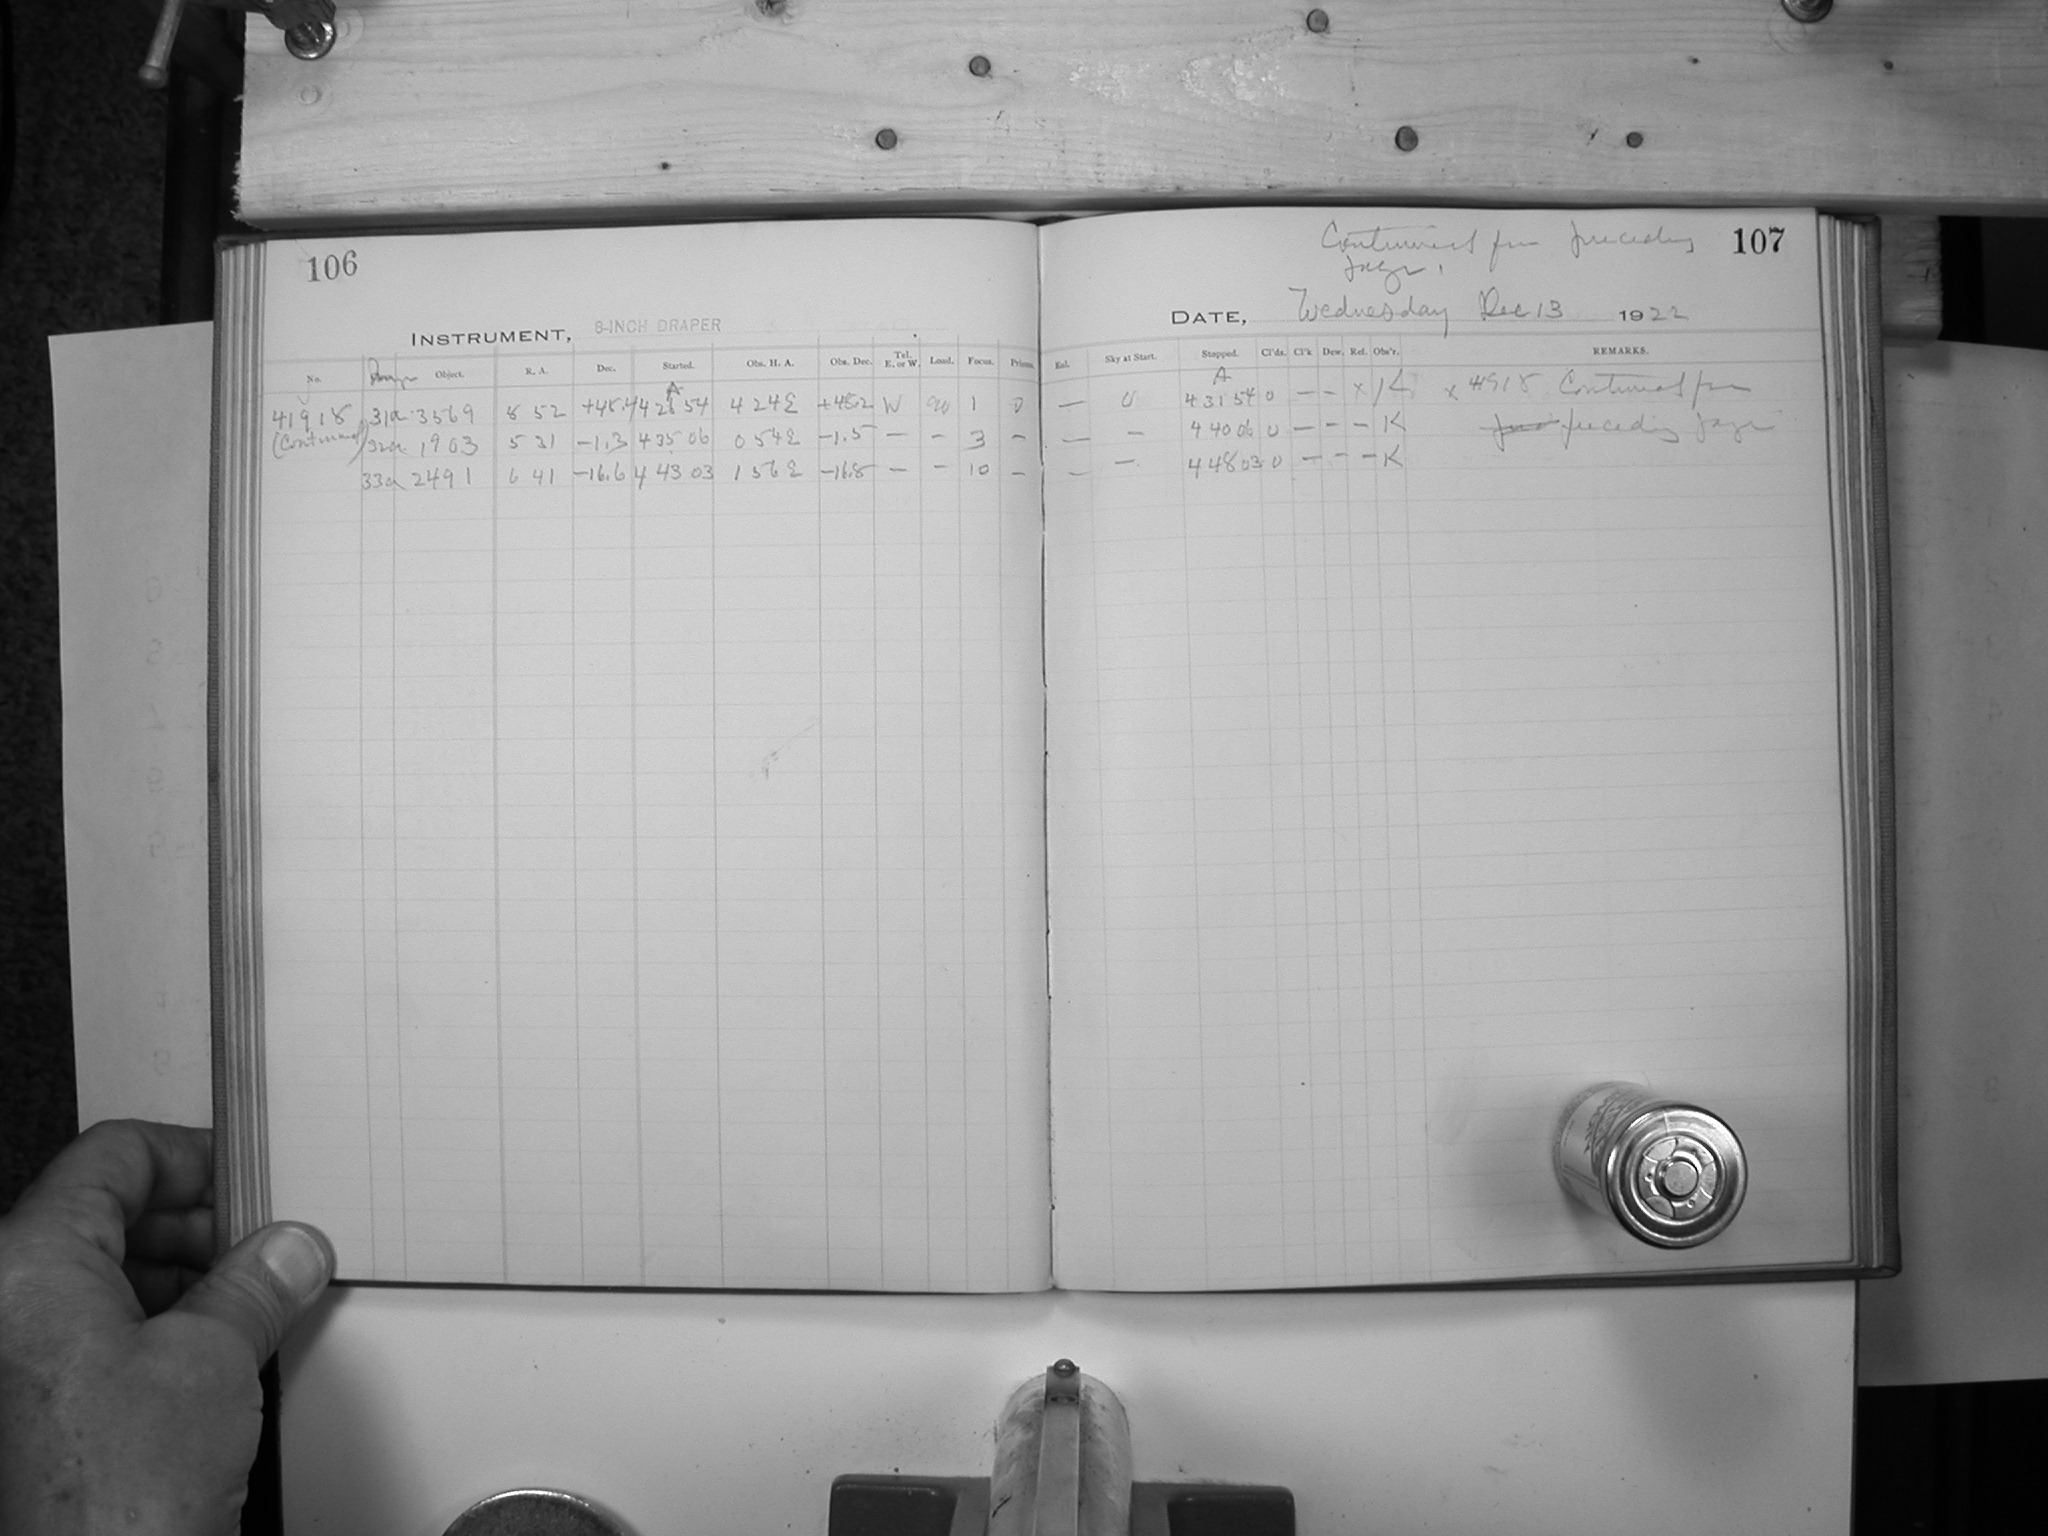 106
INSTRUMENT, 8-INCH DRAPER
No. Image Object. R. A. Dec. Started. Obs. H. A. Obs. Dec. Tel. E. or W. Load. Focus. Prisms.
A
41918 31a 3569 8 52 +48.4 4 26 54 4 24 E +48.2 W 90 1 0
(Continued) 32a 1903 5 31 -1.3 4 35 06 0 54 E -1.5 — - 3 -
33a 2491 6 41 -16.6 4 43 03 1 56 E -16.8 — - 10 -
Continued from preceding 107
page.
DATE, Wednesday Dec 13 1922
Exl. Sky at Start. Stopped. Cl'ds. Cl'k Dew. Ref. Obs'r. REMARKS.
A
— 0 4 31 54 0 — - x K x 41918 Continued from
— - 4 40 06 0 — - - K preceding page
— - 4 48 03 0 — - - K